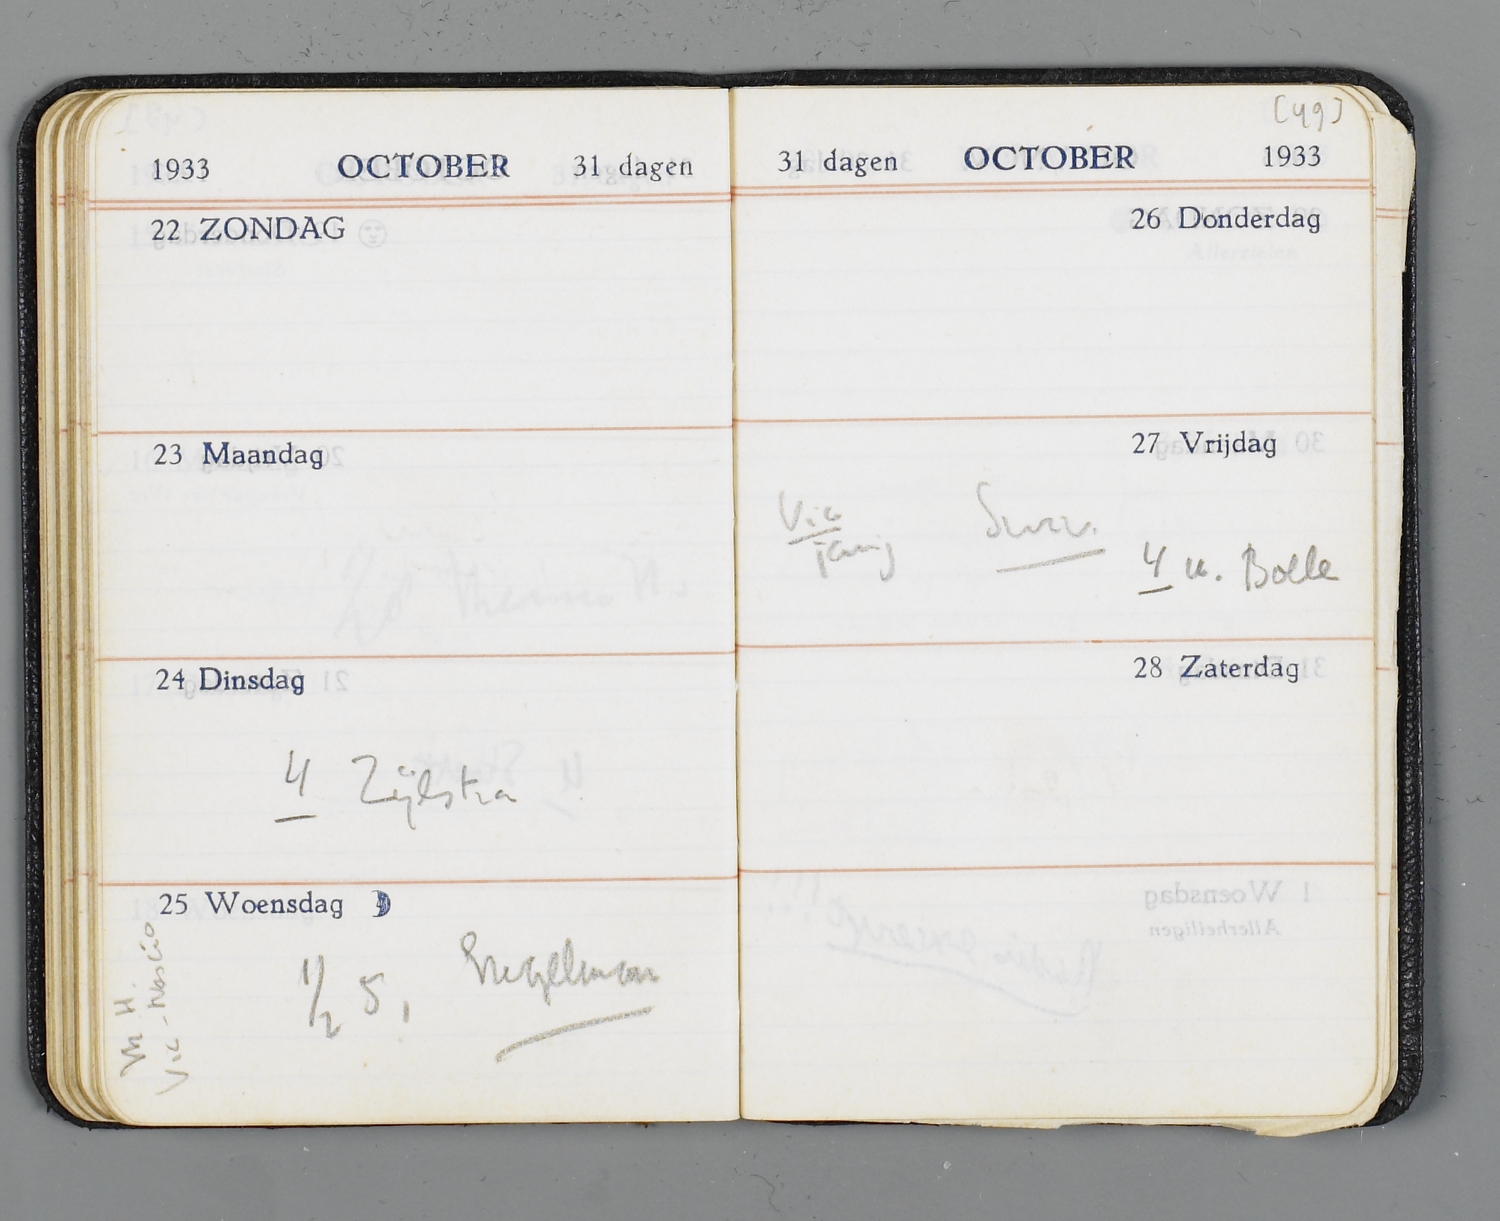 1933 OCTOBER 31 dagen
22 ZONDAG
23 Maandag
24 Dinsdag
4 Zijlstra
25 Woensdag
1/2 5, Engelman
[49]
31 dagen OCTOBER 1933
26 Donderdag
27 Vrijdag
4 u. Bolle
28 Zaterdag
1 Woensdag
Allerheiligen